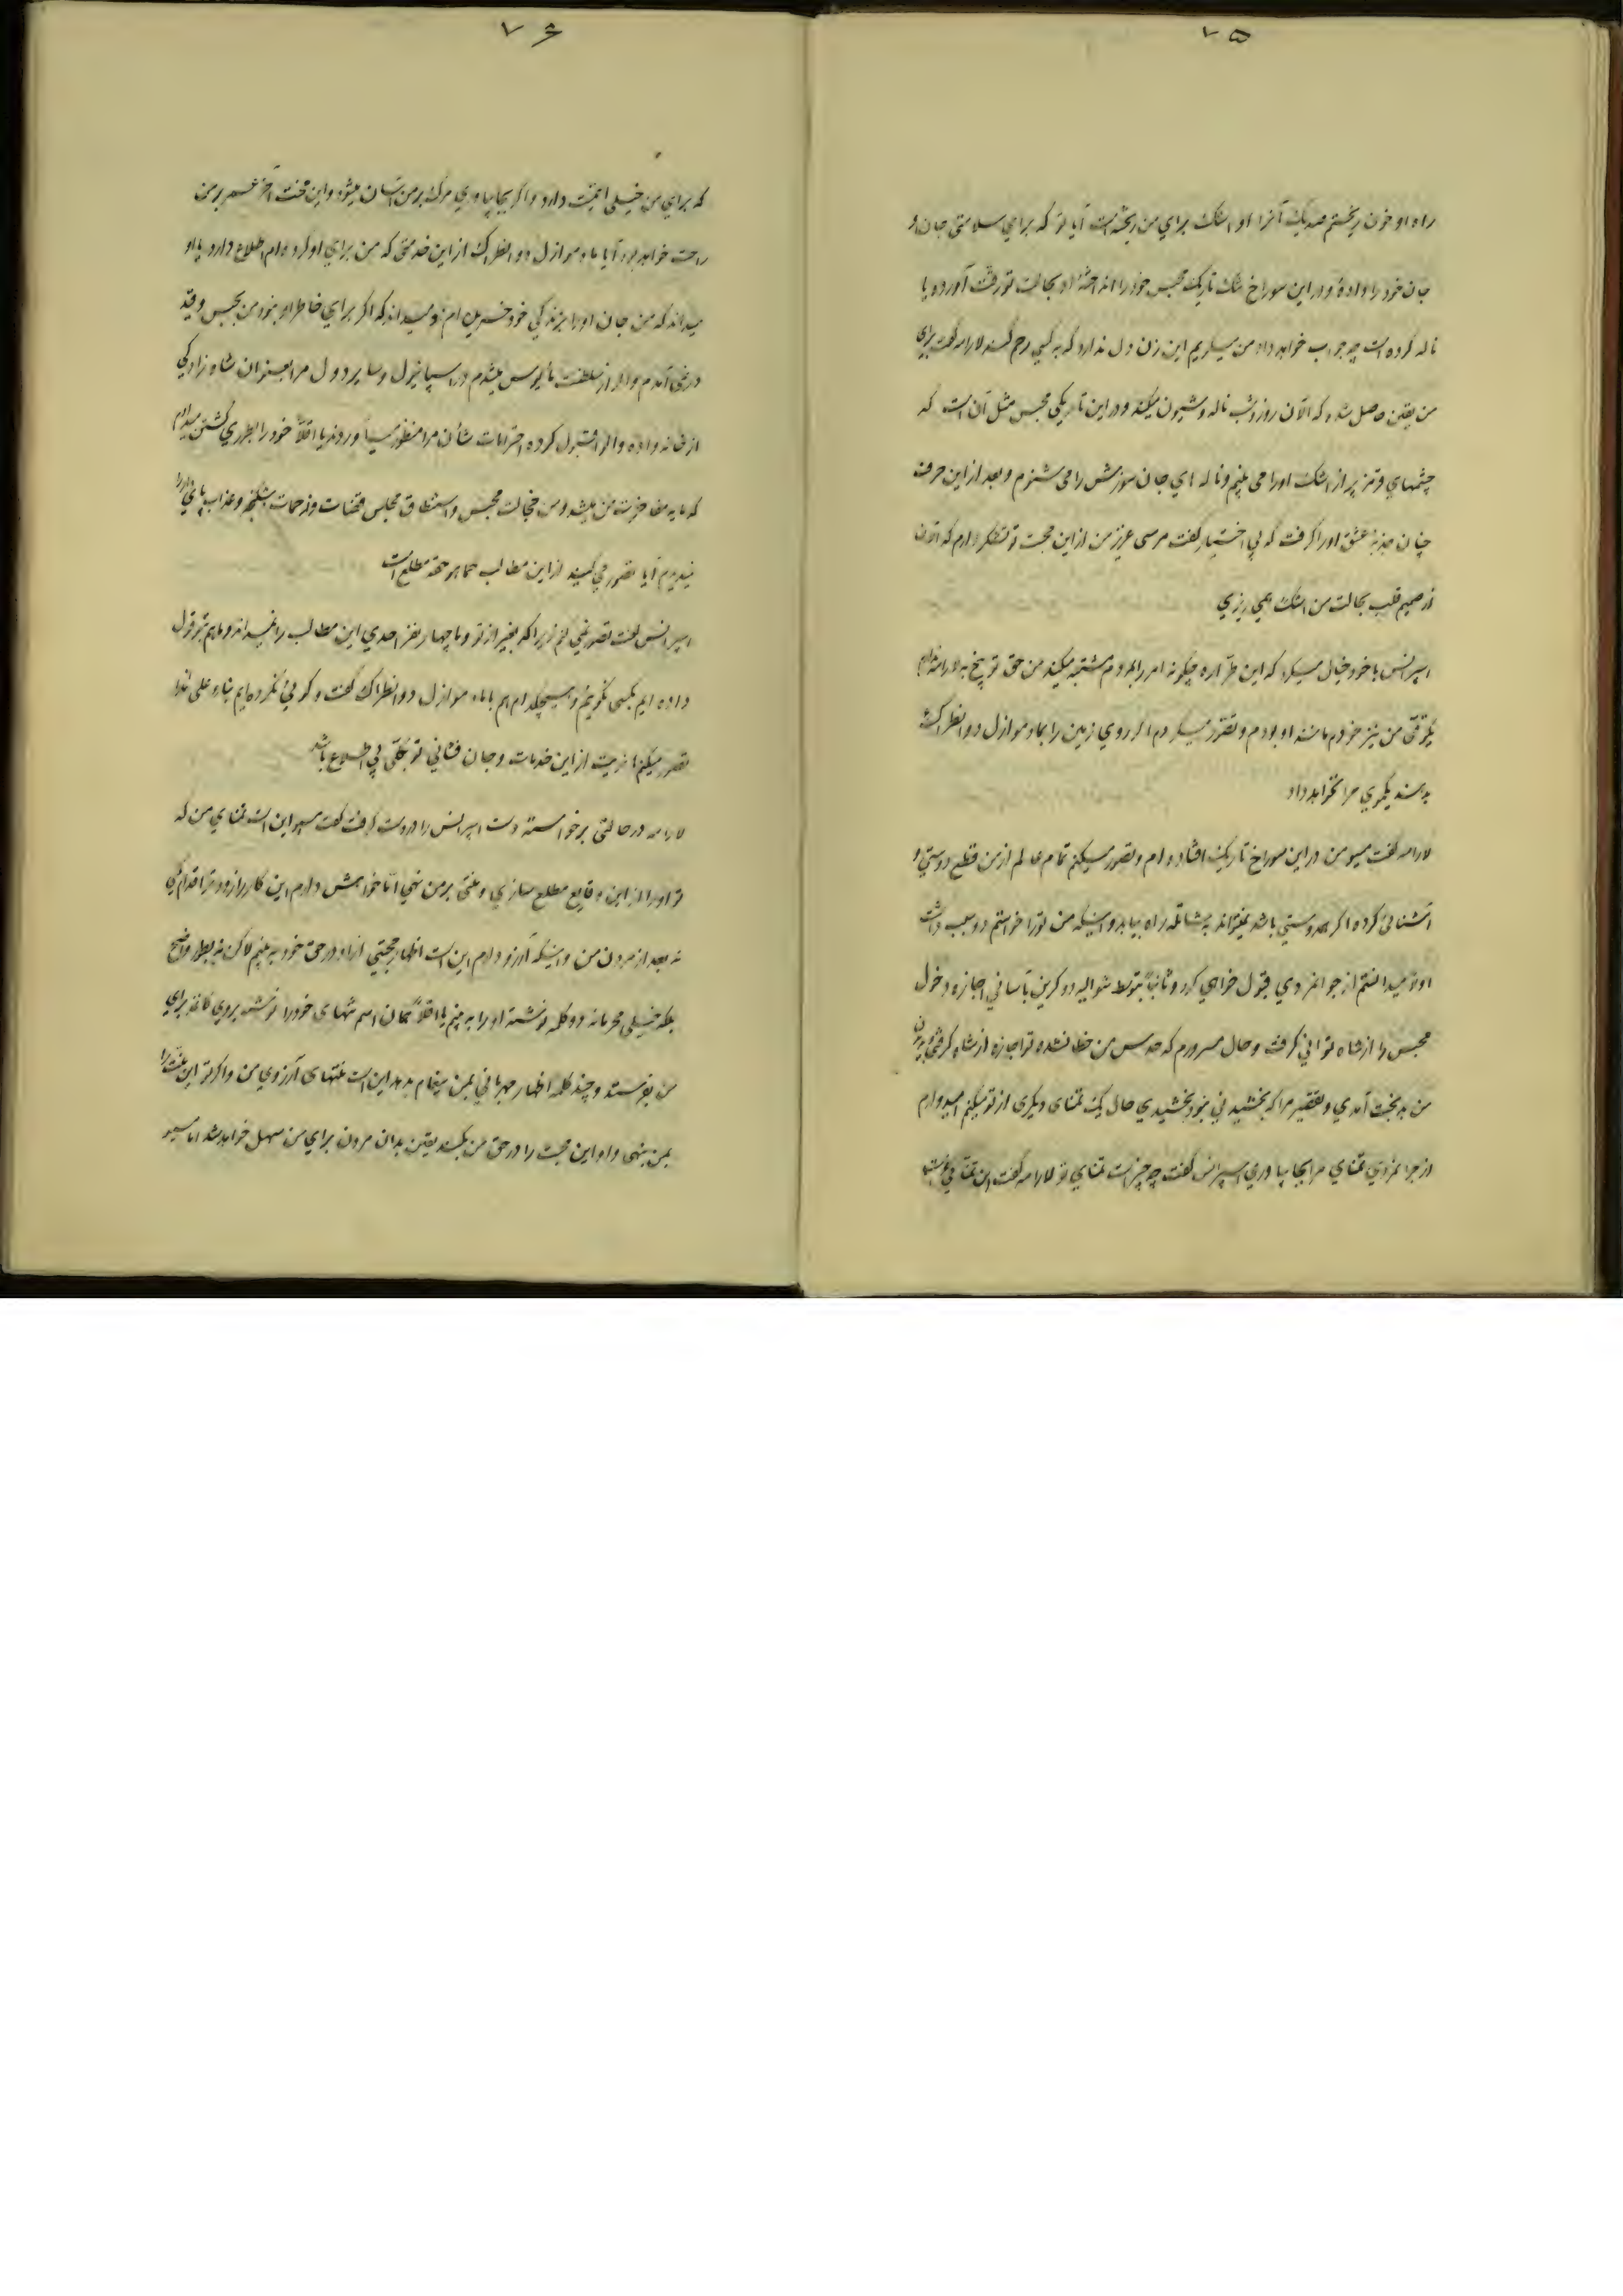 ۷۵
راه او خون ریختم صد یک آنرا او اشک برای من ریخته است آیا تو که برای سلامتی جان او
جان خود را داده و در این سوراخ تنک تاریک محبس خود را انداخته او بحالت تو رقت آورد و یا
ناله کرده است چه جواب خواهد داد من میکویم این زن دل ندارد که به کسی رحم کند لارامه کفت برای
من یقین حاصل شده که الآن روز و شب ناله و شیون میکند و در این تاریکی محبس مثل آن است که
چشمهای قرمز پر از اشک او را می بینم و ناله های جان سوزش را می شنوم و بعد از این حرف
چنان جذبه عشق او را کرفت که بی اختیار کفت مرسی عزیز من از این محبت تو تشکر دارم که الآن
از صمیم قلب بحالت من اشک همی ریزی
اسپرانس با خود خیال میکرد که این طراره چکونه امر را بمردم مشتبه میکند من حق توبیخ به لارامه ندارم
یکوقتی من نیز خودم مانند او بودم و تصور میکردم اکر روی زمین را بمادموازل دوانطراک
بدهند یکموی مرا نخواهد داد
لارامه کفت میسو من در این سوراخ تاریک افتاده ام و تصور میکنم تمام عالم از من قطع دوستی و
آشنائی کرده اکر هم دوستی باشد نمیتواند به شاتله راه بیابد و اینکه من تو را خواستم دو سبب داشت
اولا میدانستم از جوانمردی قبول خواهی کرد و ثانیاً بتوسط شوالیه دو کرین بآسانی اجازه دخول
محبس را از شاه توانی کرفت و حال مسرورم که حدس من خطا نشده تو اجازه از شاه کرفتی و بدیدن
من بدبخت آمدی و تقصیر مرا که بخشیدنی نبود بخشیدی حال یک تمنای دیکری از تو میکنم امیدوارم
از جوانمردی تمنای مرا بجا بیاوری اسپرانس کفت چه چیز است تمنای تو لارامه کفت این تمنائی است
۷۶
که برای من خیلی اهمیت دارد و اکر بجا بیاوری مرک بر من آسان میشود و این محنت آخر عمر بر من
راحت خواهد بود آیا مادموازل دوانطراک از این خدمتی که من برای او کرده ام اطلاع دارد یا او
میداند که من جان او را بزندکی خود خریده ام و میداند که اکر برای خاطر او نبود من بحبس و قید
در نمی آمدم و اکر از سلطنت مأیوس میشدم در اسپانیول و سایر دول مرا بعنوان شاه زادکی
از خانه داده والا قبول کرده احترامات شأن مرا منظور میآوردند یا اقلاً خود را بطوری کشتن میدادم
که مایه مفاخرت من میشد و من خجالت محبس و استنطاق مجلس قضات و زحمات شکنجه و عذاب پای دار را
نمیدیدم آیا تصور می کنید از این مطالب کما هو حقه مطلع است
اسپرانس کفت تصور نمی کنم زیرا که بغیر از تو و ما چهار نفر احدی این مطالب را نمیداند و ما هم بتو قول
داده ایم بکسی نکوئیم و هیچکدام هم با مادموازل دوانطراک کفت و کوئی نکرده ایم بناء علی هذا
تصور میکنم هانریت از این خدمات و جان فشانی تو بکلی بی اطلاع باشد
لارامه در حالتی برخواسته دست اسپرانس را در دست کرفت کفت میسو این است تمنای من که
تو او را از این وقایع مطلع سازی و منتی بر من نهی اما خواهش دارم این کار را زودتر اقدام کنی
نه بعد از مردن من و اینکه آرزو دارم این است اظهار محبتی از او در حق خود به بینم لاکن نه بطور واضح
بلکه خیلی محرمانه دو کلمه نوشته او را به بینم یا اقلاً همان اسم تنهای خود را نوشته بروی کاغذ برای
من بفرستد و چند کلمه اظهار مهربانی بمن پیغام بدهد این است منتهای آرزوی من و اکر تو این منت را
بمن بنهی و او این محبت را در حق من بکند یقین بدان مردن برای من سهل خواهد شد اما میسو